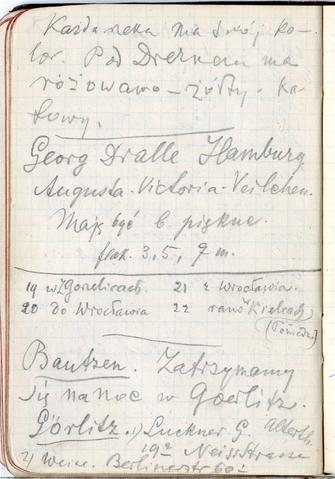 Każda rzeka ma swój ko-
lor. Pod Dreznem ma
różowawo - żółty - ka-
wowy.
Georg Dralle Hamburg
Augusta-Victoria-Veilchen.
Mają być b. piękne.
flak. 3, 5, 7 m.
19 w Gorelicach. 21 z Wrocławia.
20 do Wrocławia 22 rano Kielcach
Bautzen. Zatrzymamy
się na noc w Goerlitz.
Görlitz. 1) Luckner G. Alterth.
19a Neissstrasse
2) Weise. Berlinerstr 60